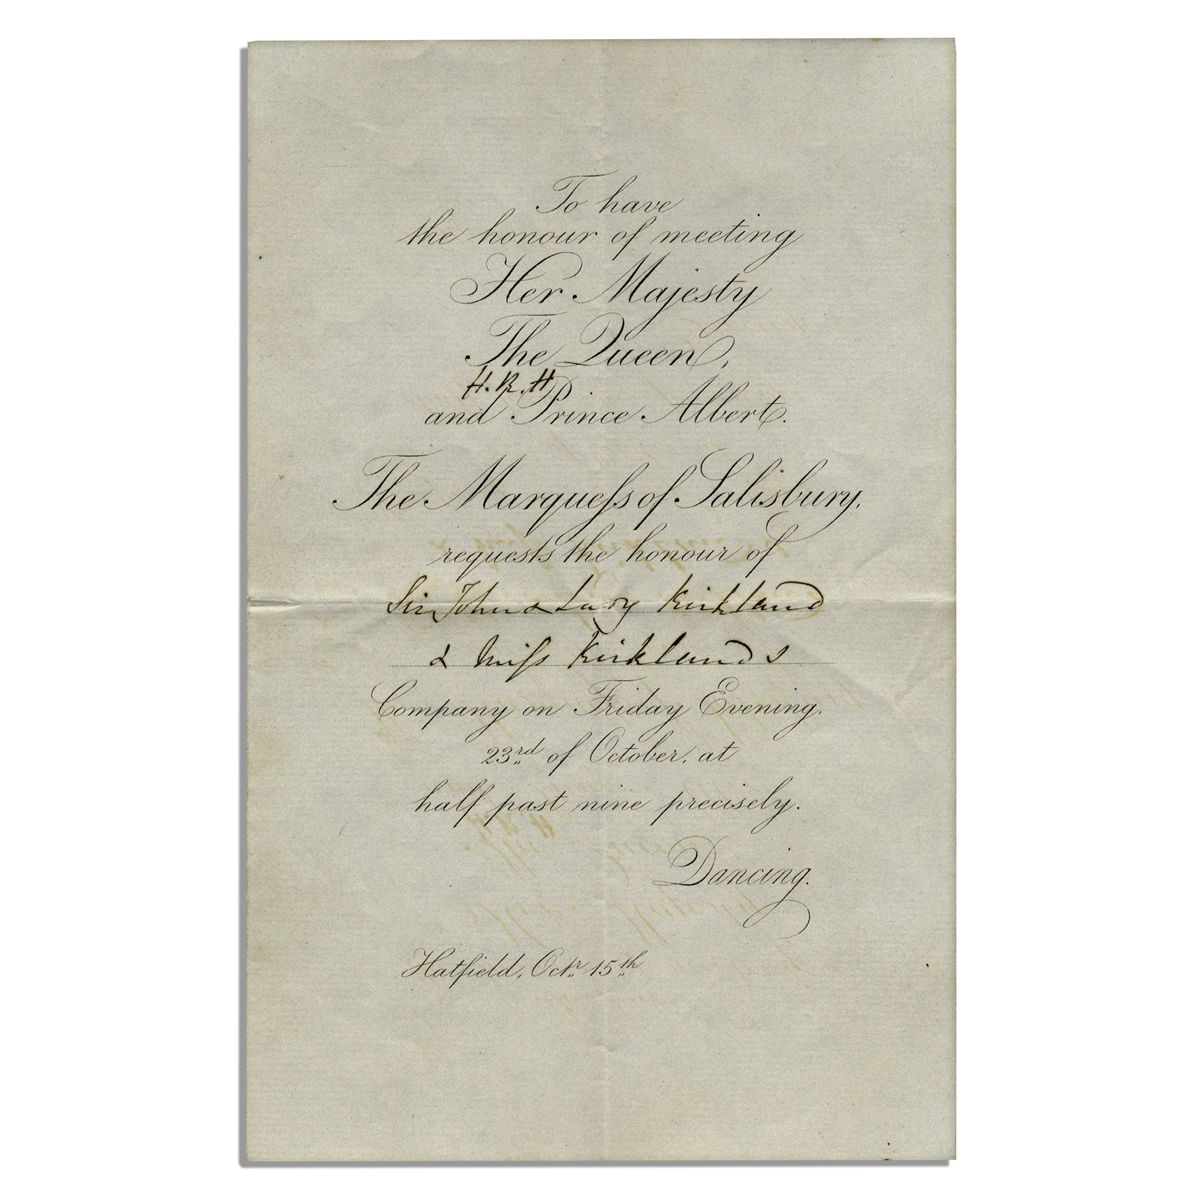 To have
the honour of meeting
Her Majesty
The Queen,
H.R.H
and Prince Albert.
The Marquess of Salisbury,
requests the honour of
Sir John & Lady Kirkland
& Miss Kirklands
Company on Friday Evening,
23rd of October, at
half past nine precisely.
Dancing.
Hatfield, Octr. 15th